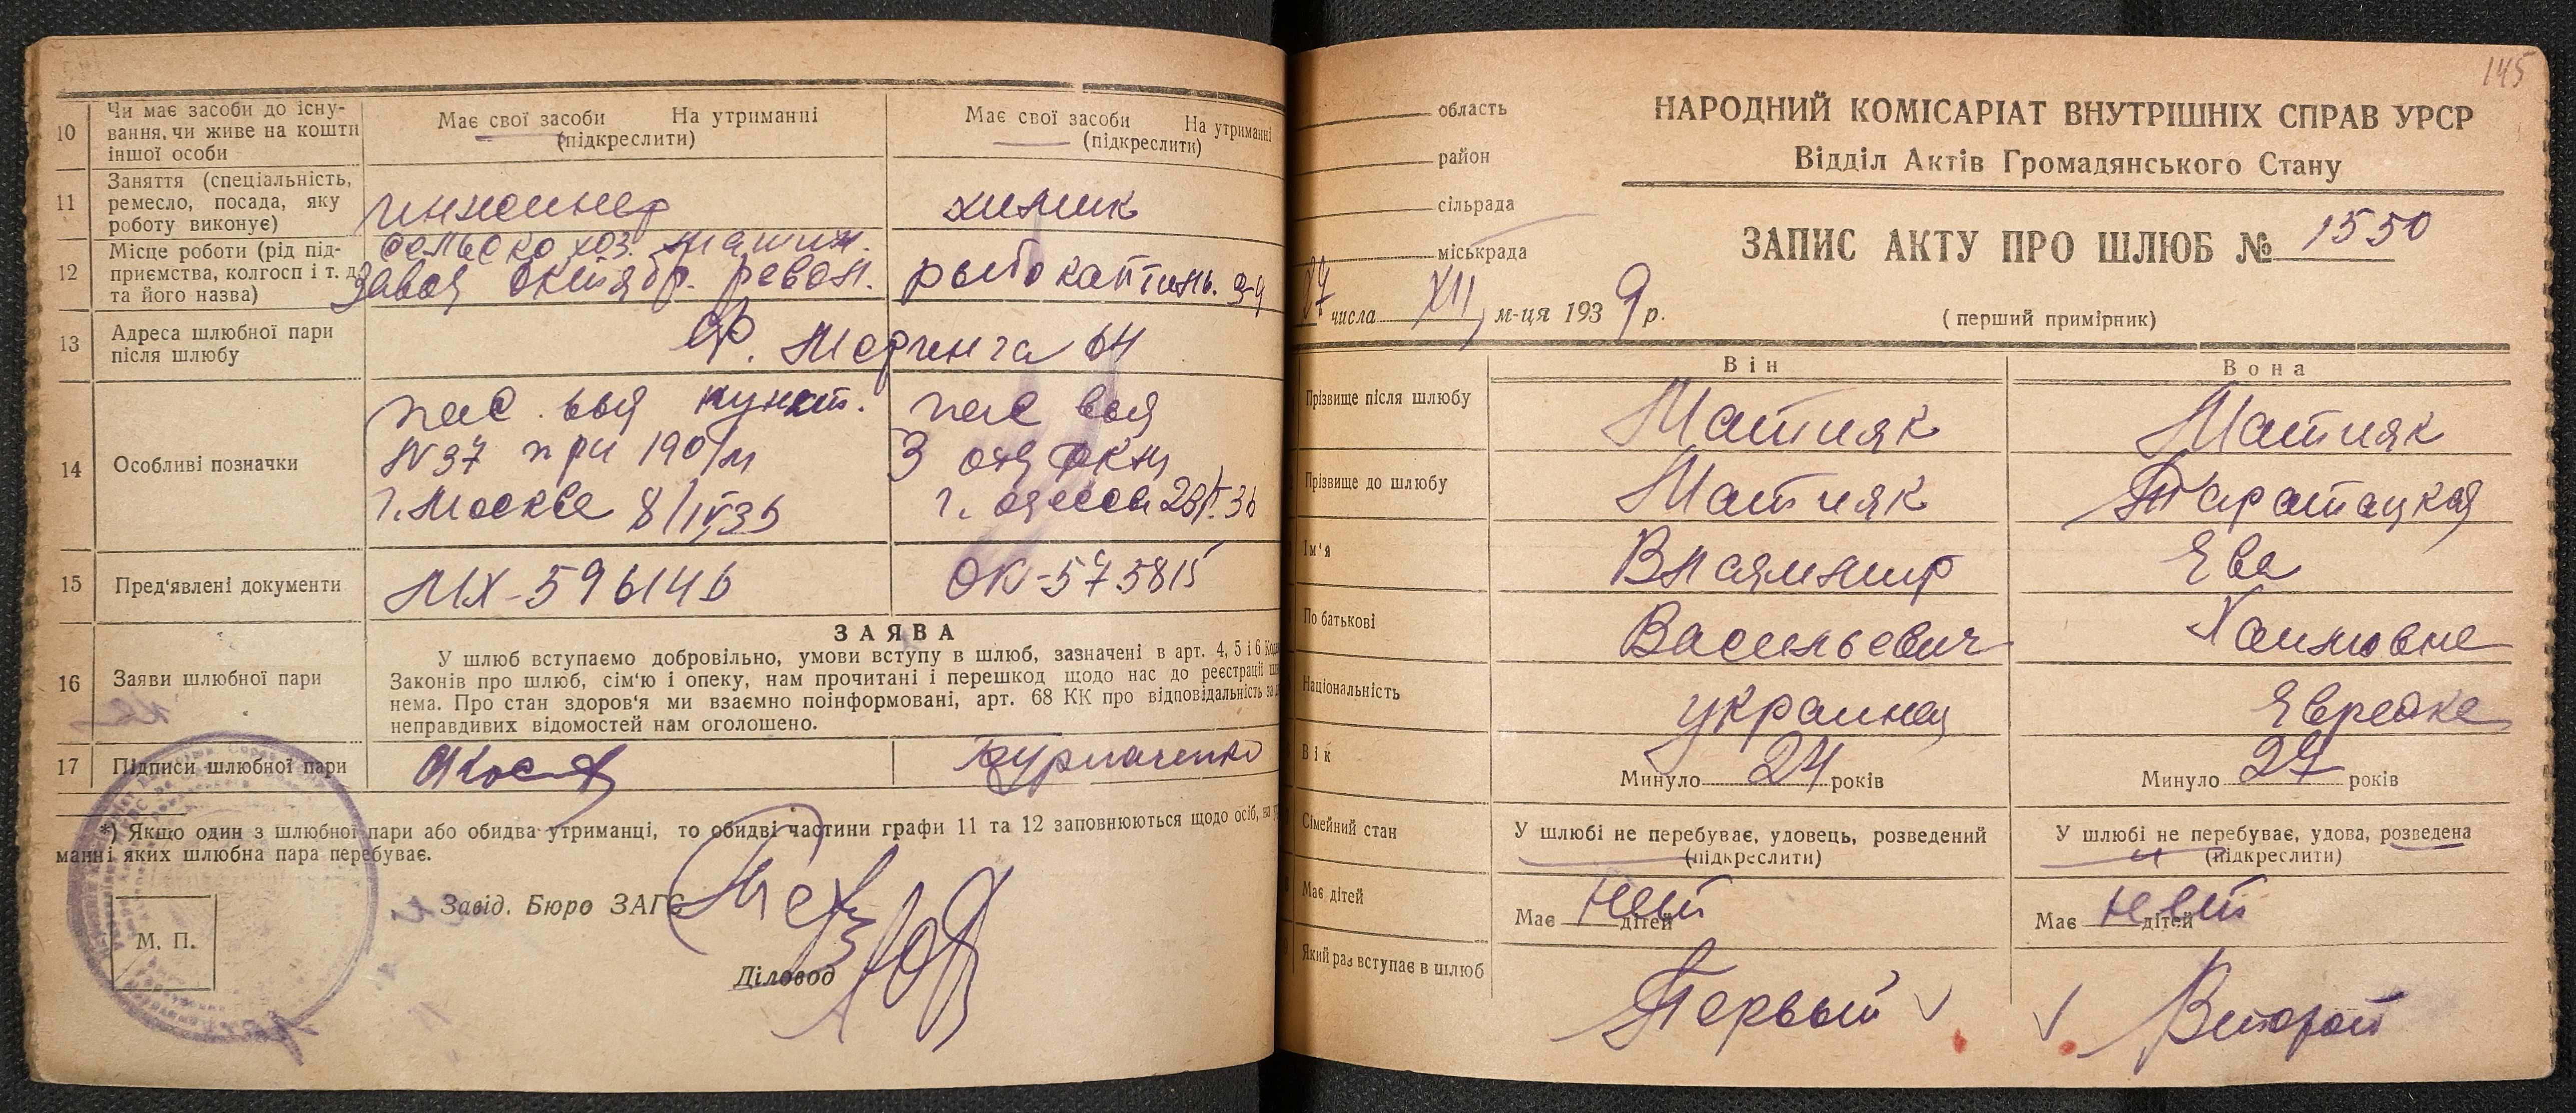 10
Чи має засоби до існу-
вання, чи живе на кошти
іншої особи
Має свої засоби На утриманні
(підкреслити)
Має свої засоби На утриманні
(підкреслити)
11
Заняття (спеціальність,
ремесло, посада, яку
роботу виконує)
инженер
сельскохоз. машин.
химик
12
Місце роботи (рід під-
приємства, колгосп і т. д.
та його назва)
завод октябр. револ.
13
Адреса шлюбної пари
після шлюбу
64
14
Особливі позначки
пас. выд пункт.
N 37 при 190/м
г. Москве 8/IV 36
пас выд
3 отд
г.
15
Пред'явлені документи
МХ-596146
ОК-575815
16
Заяви шлюбної пари
ЗАЯВА
У шлюб вступаємо добровільно, умови вступу в шлюб, зазначені в арт. 4, 5 і 6
Законів про шлюб, сім'ю і опеку, нам прочитані і перешкод щодо нас до реєстрації
нема. Про стан здоров'я ми взаємно поінформовані, арт. 68 КК про відповідальність за
неправдивих відомостей нам оголошено.
17
Підписи шлюбної пари
*) Якщо один з шлюбної пари або обидва утриманці, то обидві частини графи 11 та 12 заповнюються щодо осіб, на
манні яких шлюбна пара перебуває.
Завід. Бюро ЗАГС
М. П.
Діловод
145
область
район
сільрада
міськрада
27 числа XII м-ця 1939 р.
НАРОДНИЙ КОМІСАРІАТ ВНУТРІШНІХ СПРАВ УРСР
Відділ Актів Громадянського Стану
ЗАПИС АКТУ ПРО ШЛЮБ № 1550
(перший примірник)
Він
Вона
Прізвище після шлюбу
Матияк
Матияк
Прізвище до шлюбу
Матияк
Таратацкая
Ім'я
Владимир
Ева
По батькові
Васильевич
Хаимовне
Національність
украинец
Еврейке
Вік
Минуло 24 років
Минуло 27 років
Сімейний стан
У шлюбі не перебуває, удовець, розведений
(підкреслити)
У шлюбі не перебуває, удова, розведена
(підкреслити)
Має дітей
Має нет дітей
Має нет дітей
Який раз вступає в шлюб
Первый
Второй